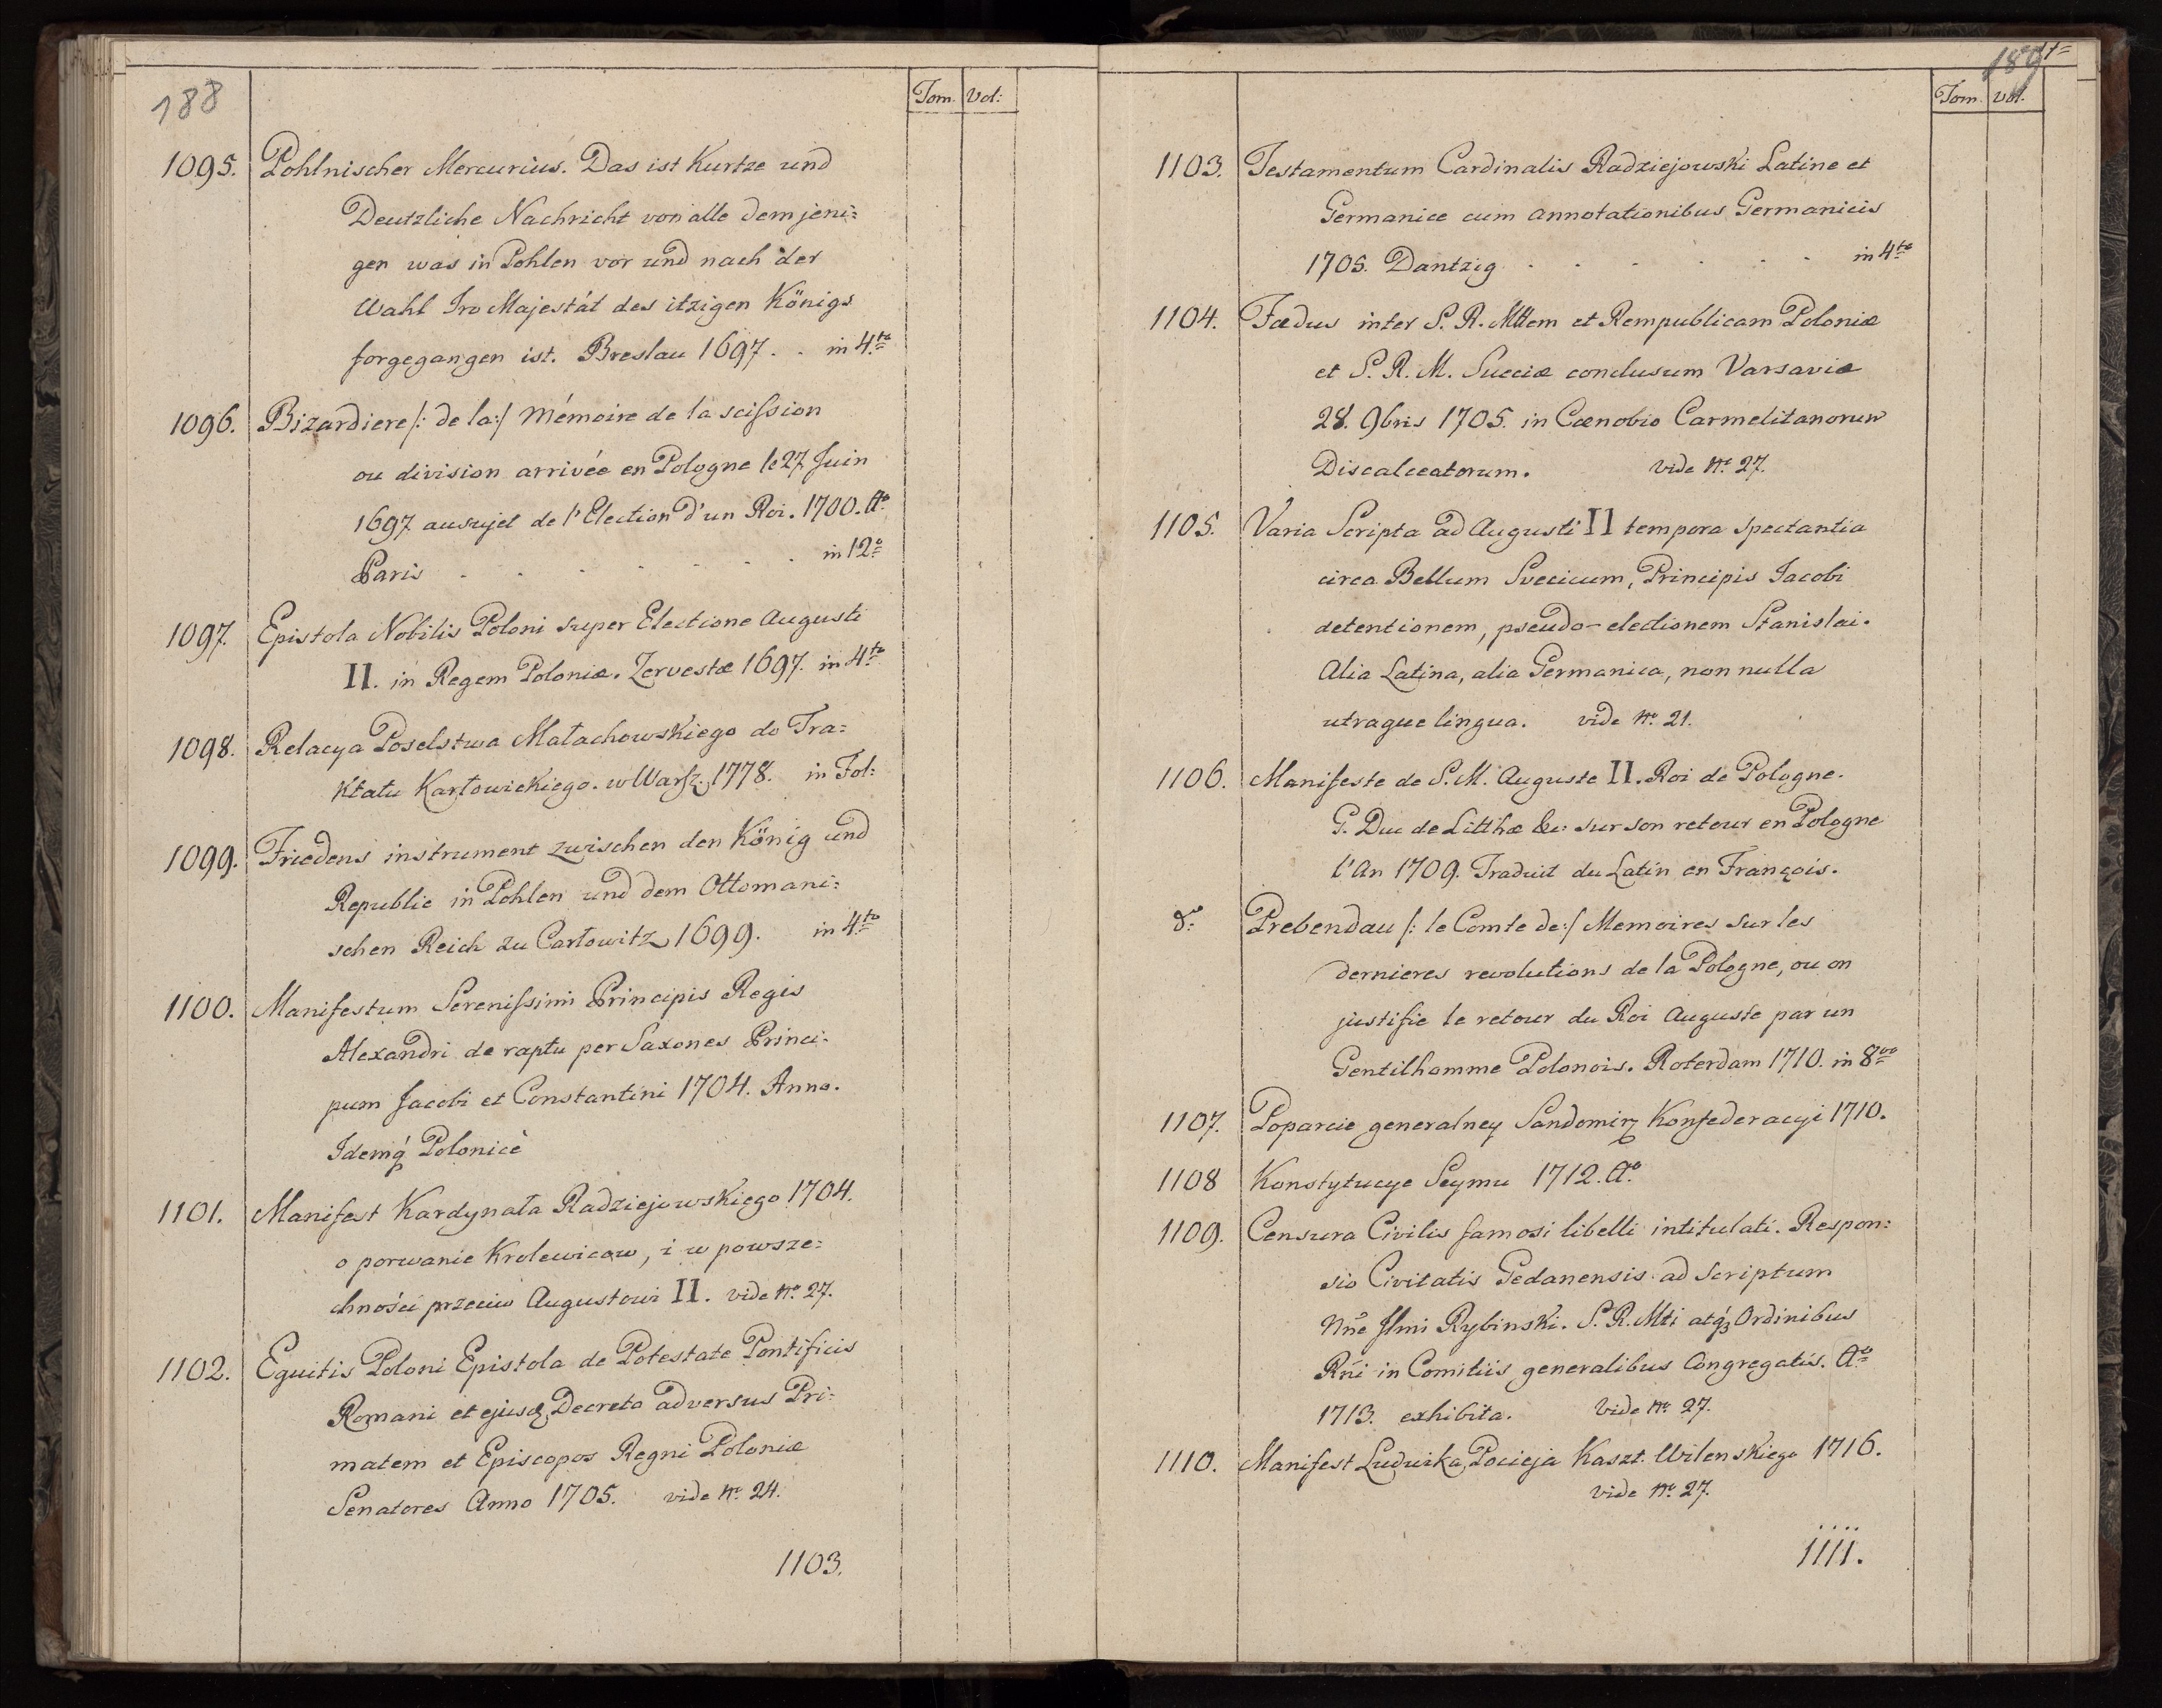 188
Tom. Vol:
1095. Pohlnischer Mercurius. Das ist Kurtze und
Deutzliche Nachricht von alle demjeni:
gen was in Pohlen vor und nach der
Wahl Iro Majestät des itzigen Königs
forgegangen ist. Breslau 1697. . in 4.to
1096. Bizardiere /: de la :/ Mémoire de la scission
ou division arrivée en Pologne le 27 Juin
1697 ausujet de l'Election d'un Roi. 1700. Ao
Paris . . . . . . . in 12o
1097. Epistola Nobilis Poloni super Electione Augusti
II. in Regem Poloniæ. Zervestæ 1697. in 4.to
1098. Relacya Poselstwa Małachowskiego do Tra:
ktatu Karłowickiego. w Warsz. 1778. in Fol:
1099. Friedens instrument zwischen den König und
Republic in Pohlen und dem Ottomani:
schen Reich zu Carłowitz 1699. in 4.to
1100. Manifestum Serenissimi Principis Regis
Alexandri de raptu per Saxones Princi:
pum Jacobi et Constantini 1704. Anno.
Idemq́ Polonicè
1101. Manifest Kardynała Radziejowskiego 1704.
o porwanie Krolewicow, i w powsze:
chności przeciw Augustowi II. vide No 27.
1102. Equitis Poloni Epistola de Potestate Pontificis
Romani et ejusq́ Decreto adversus Pri:
matem et Episcopos Regni Poloniæ
Senatores Anno 1705. vide No 24.
1103.
189
Tom. Vol.
1103. Testamentum Cardinalis Radziejowski Latine et
Germanice cum annotationibus Germanicis
1705. Dantzig . . . . . . in 4to
1104. Fœdus inter S. R. Mttem et Rempublicam Poloniæ
et S. R. M. Sueciæ conclusum Varsaviæ
28. 9bris 1705. in Cœnobio Carmelitanorum
Discalceatorum. vide No 27.
1105. Varia Scripta ad Augusti II tempora spectantia
circa Bellum Svecicum, Principis Jacobi
detentionem, pseudo-electionem Stanislai.
Alia Latina, alia Germanica, non nulla
utraque lingua. vide No 21.
1106. Manifeste de S. M. Auguste II. Roi de Pologne.
G. Duc de Litthæ &c: sur son retour en Pologne
l'An 1709. Traduit du Latin en François.
do Prebendau /: le Comte de :/ Memoires sur les
dernieres revolutions de la Pologne, ou on
justifie le retour du Roi Auguste par un
Gentilhomme Polonois. Roterdam 1710. in 8vo
1107. Poparcie generalney Sandomirz Konfederacyi 1710.
1108 Konstytucye Seymu 1712. Ao
1109. Censura Civilis famosi libelli intitulati. Respon:
sio Civitatis Gedanensis ad Scriptum
Nñe Jlmi Rybinski. S. R. Mti atq́ Ordinibus
Rñi in Comitiis generalibus Congregatis. Ao
1713. exhibita. vide No 27.
1110. Manifest Ludwika Pocieja Kaszt. Wilenskiego 1716.
vide No 27.
1111.